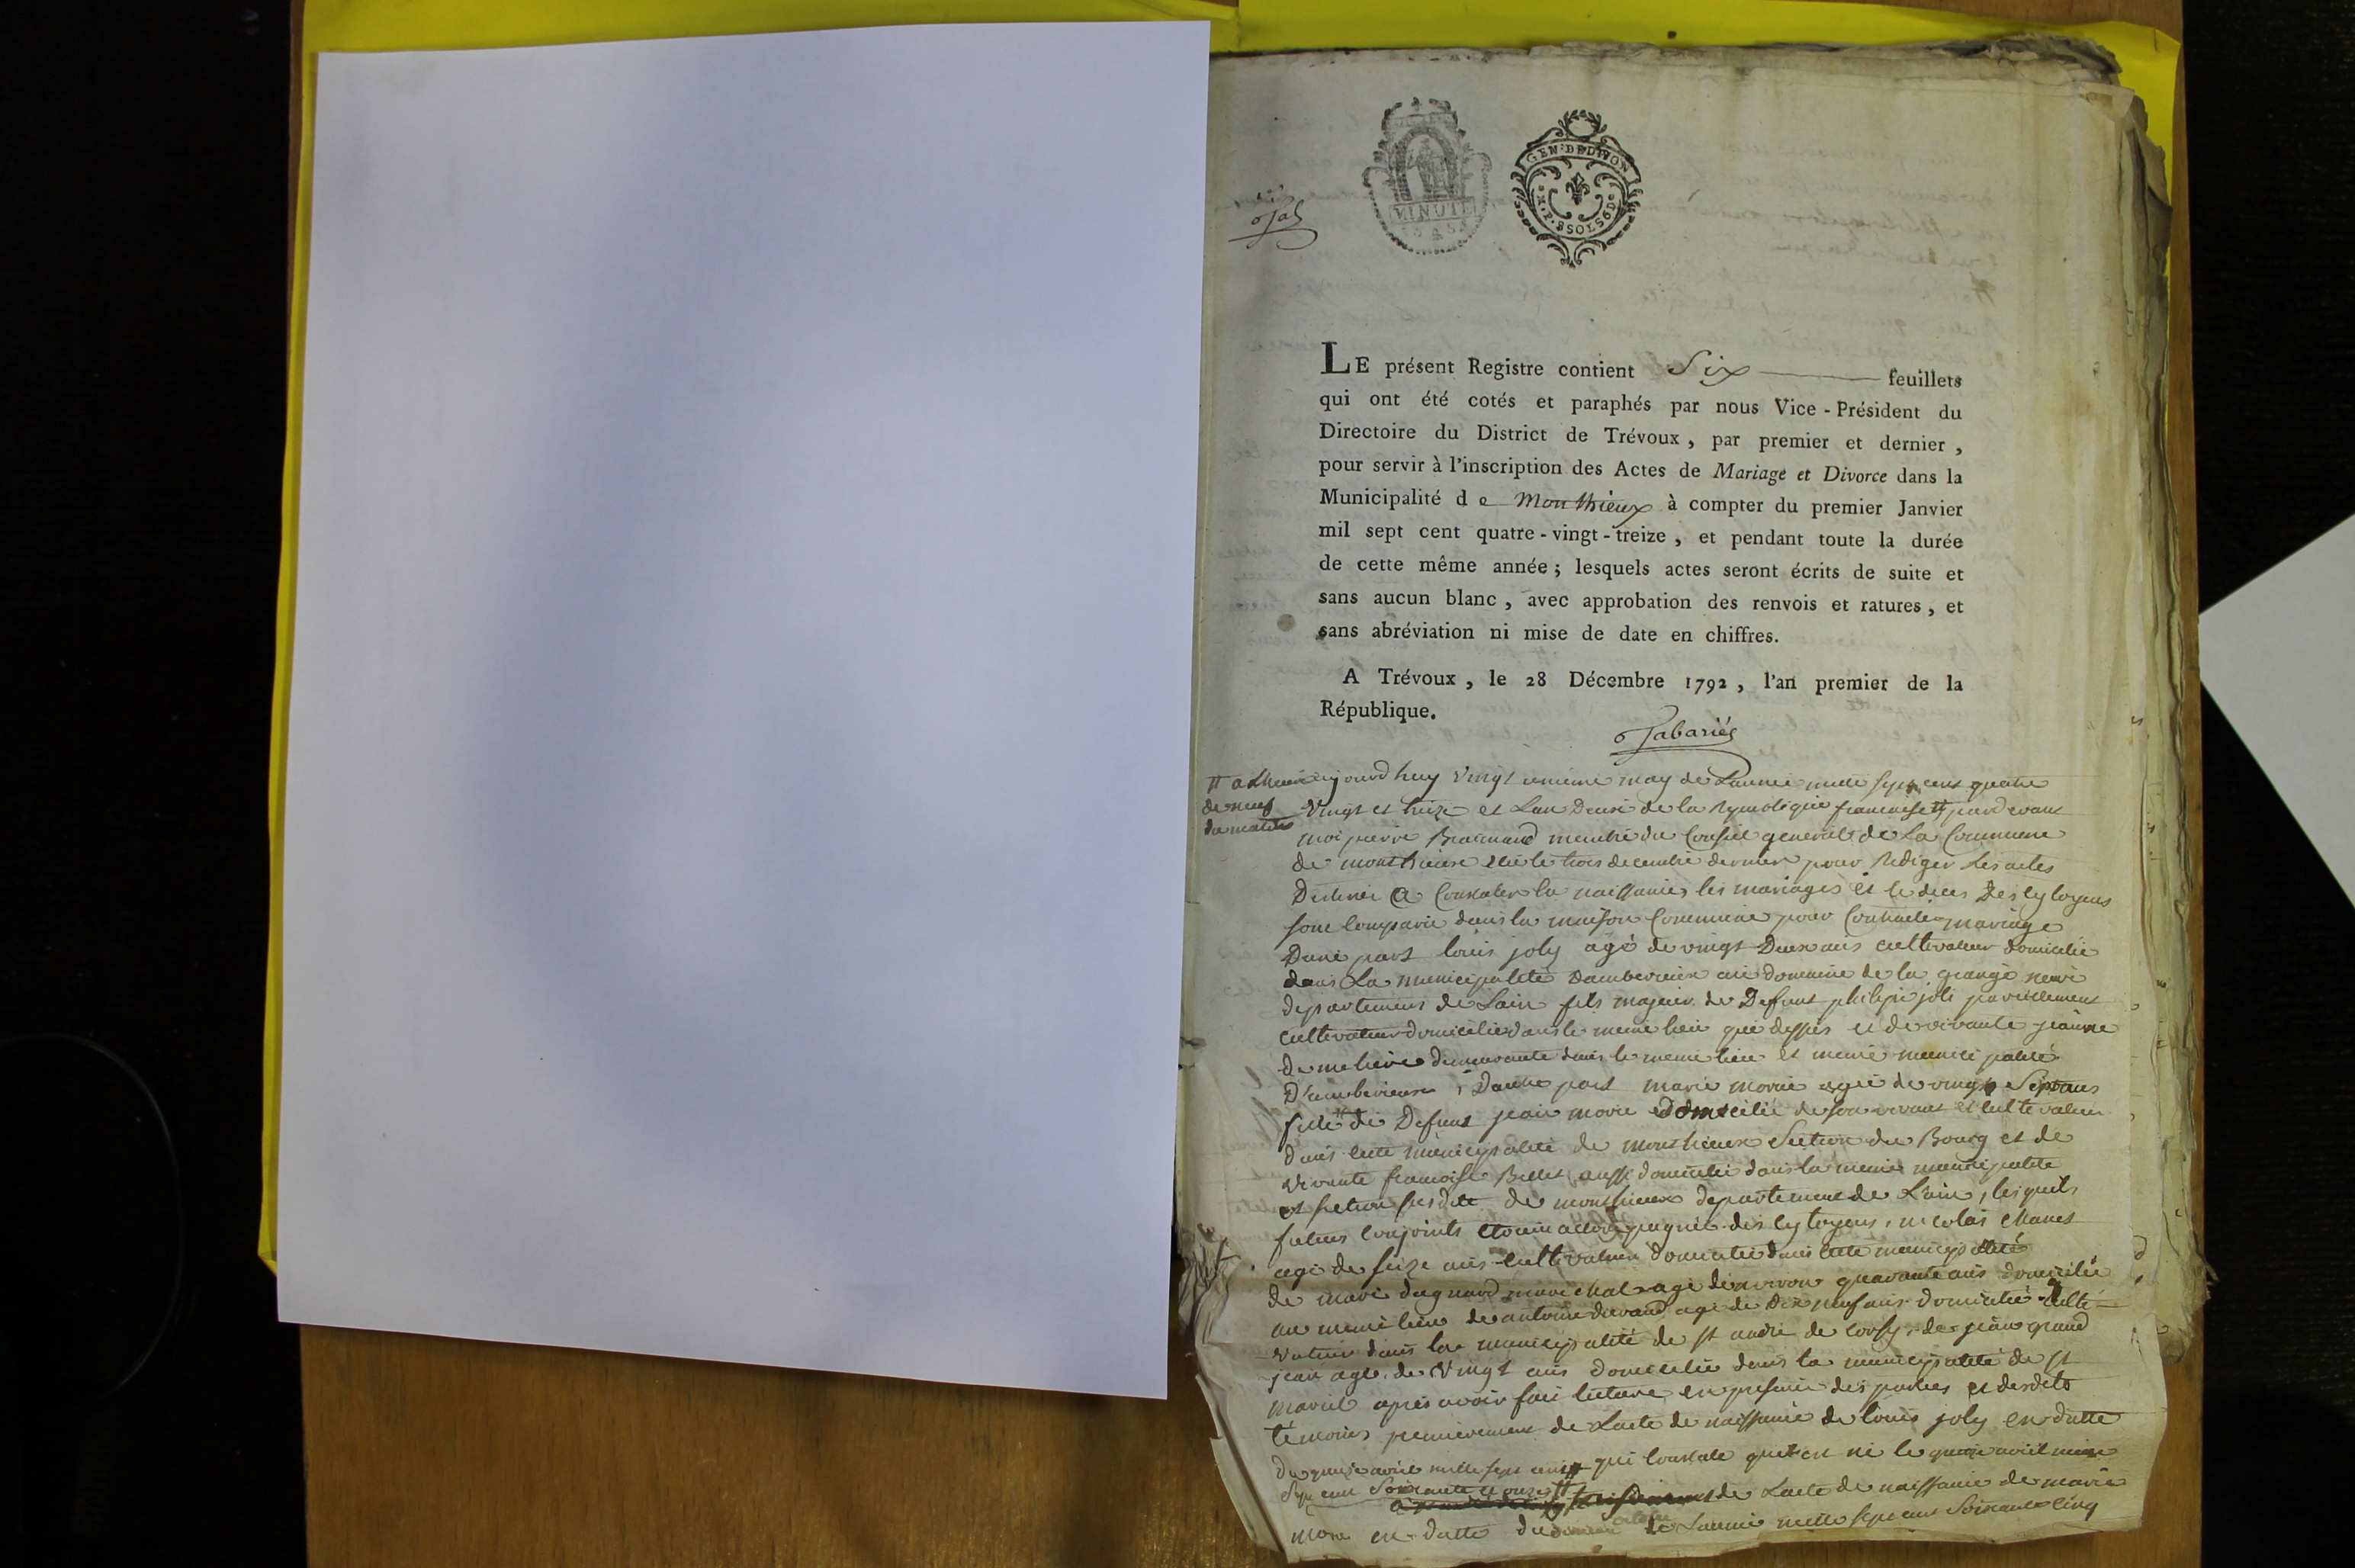 MINUTE
GEN. BEDIJON
M.P. 8SOLS6D.
Jab
LE présent Registre contient Six feuillets
qui ont été cotés et paraphés par nous Vice-Président du
Directoire du District de Trévoux, par premier et dernier,
pour servir à l'inscription des Actes de Mariage et Divorce dans la
Municipalité de Monthieux à compter du premier Janvier
mil sept cent quatre-vingt-treize, et pendant toute la durée
de cette même année; lesquels actes seront écrits de suite et
sans aucun blanc, avec approbation des renvois et ratures, et
sans abréviation ni mise de date en chiffres.
A Trévoux, le 28 Décembre 1792, l'an premier de la
République.
Jabariés
# a Lheure
de neuf
du matin
ajourd huy vingt unieme may de Lannée mille sept cent quatre
vingt et treize et Lan Deusie de la republique francaise # pard evant
moi pierre membre du Conseil general de La Commune
de monthieux elu le trois decembre dernier pour rediger les actes
Destinés a Constater la naissance les mariages et le deces Des cytoyens
sont comparu dans la maison Commune pour Contracter mariage
Dune part louis joly agé de vingt Deux ans cultivateur domicilié
dans La municipalité damberieux au domaine de la grange neuve
departement de Lain fils majeur de Defunt philipe joli pareillement
cultivateur domicilié dans le meme lieu que dessus et de vivante jeanne
demeurante dans le meme lieu et meme municipalité
D'amberieux, Dautre part marie morie agée de vingt Sept ans
fille de Defunt jean morie domicilié de son vivant et cultivateur
dans cette municipalité de monthieux Section du Bourg et de
vivante francoise Bellet aussi domicilié dans la meme municipalité
et section susdite de monthieux departement de Lain, lesquels
futurs conjoints etoient accompagnés des cytoyens, nicolas
agé de seize ans cultivateur domicilié dans cette municipalité
de marechal agé denviron quarante ans domicilié
au meme lieu de antoine durand agé de Dix neuf ans domicilié culti-
vateur dans la municipalité de st andré de corsy, de jean grand
jean agé de vingt ans domicilié dans la municipalité de st
marcel apres avoir fait lecture en presence des parties et desdits
témoins premierement de Lacte de naissance de louis joly en datte
du avril mille sept cent # qui constate quil est né le avril mille
sept cent soixante et onze #
de Lacte de naissance de marie
morie en datte du de Lannée mille sept cent soixante cinq